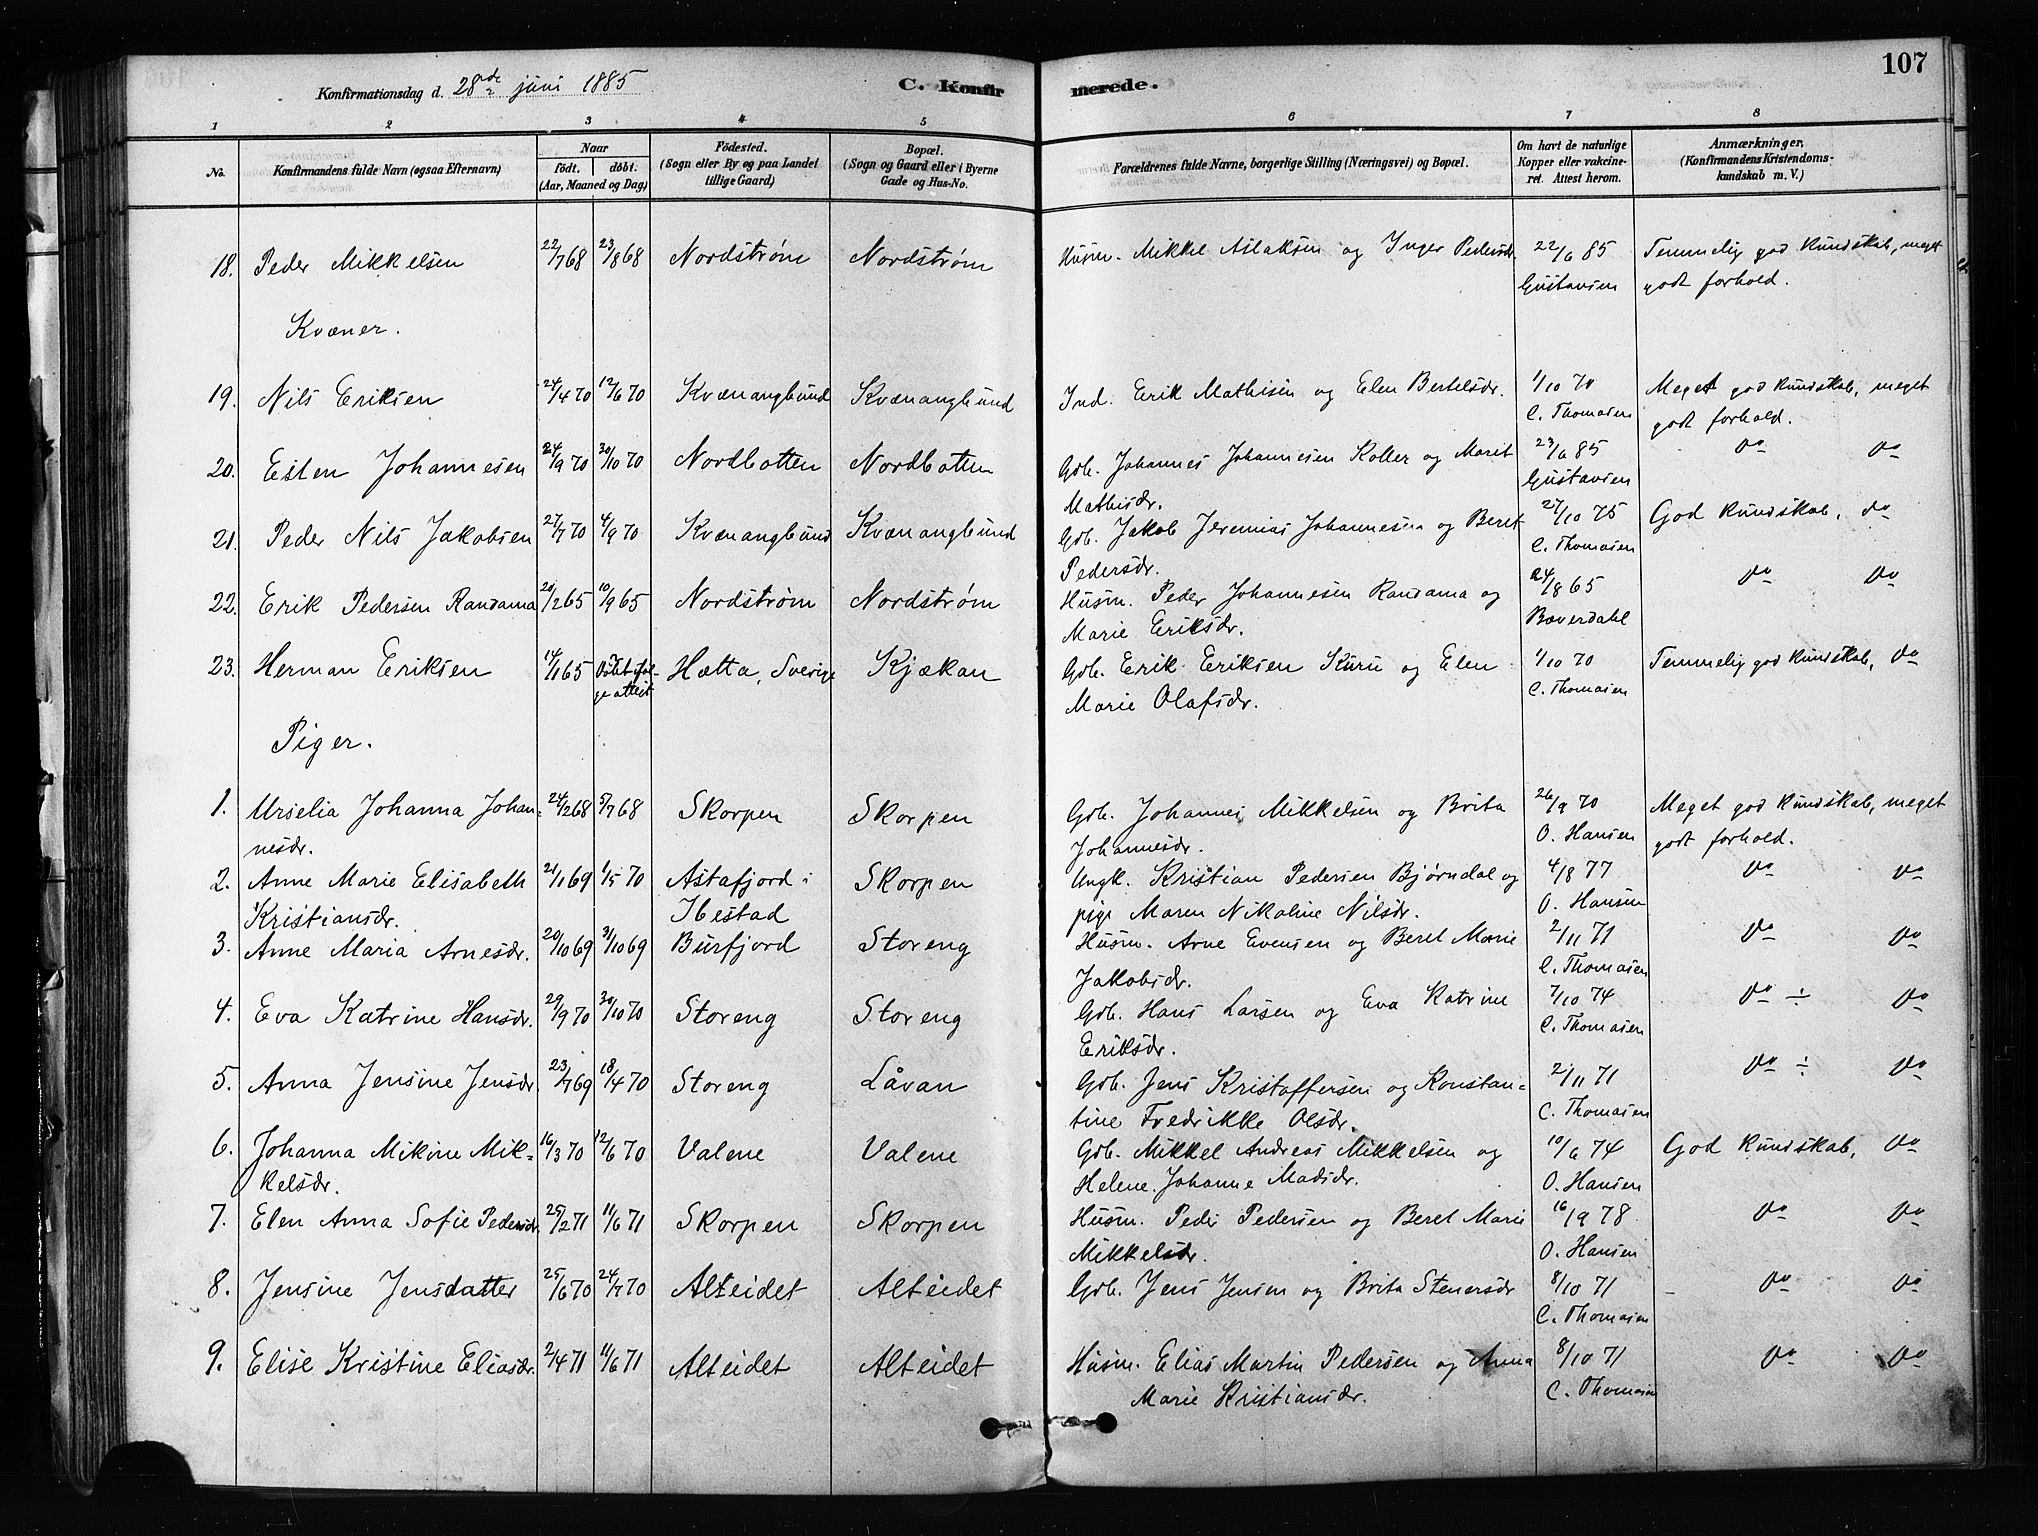 107
Konfirmationsdag d. 28de juni 1885 C. Konfirmerede.
1 2 3 4 5 6 7 8
No. Konfirmandens fulde Navn (ogsaa Efternavn) Naar Født. døbt. (Aar, Maaned og Dag) Fødested. (Sogn eller By og paa Landet tillige Gaard) Bopæl. (Sogn og Gaard eller i Byerne Gade og Hus-No. Forældrenes fulde Navne, borgerlige Stilling (Næringsvei) og Bopæl. Om havt de naturlige Kopper eller vakcineret. Attest herom. Anmærkninger, (Konfirmandens Kristendomskundskab m. V.)
18. Peder Mikkelsen 22/7 68 23/8 68 Nordstrøm Nordstrøm Husm. Mikkel Aslaksen og Inger Pedersdr. 22/6 85 Temmelig god kundskab, meget
Gustavsen godt forhold.
Kvæner.
19. Nils Eriksen 24/4 70 12/6 70 Kvænangbund Kvænangbund Ind. Erik Mathisen og Elen Bertelsdr. 1/10 70 Meget god kundskab, meget
C. Thomasen godt forhold.
20. Esten Johannesen 24/9 70 30/10 70 Nordbotten Nordbotten Gdb. Johannes Johannesen Koller og Marit 23/6 85 do do
Mathisdr. Gustavsen
21. Peder Nils Jakobsen 27/7 70 4/9 70 Kvænangbund Kvænangbund Gdb. Jakob Jeremias Johannesen og Beret 27/10 75 God kundskab, do
Pedersdr. C. Thomasen
22. Erik Pedersen Randama 20/2 65 10/9 65 Nordstrøm Nordstrøm Husm. Peder Johannesen Randama og 24/8 65 do do
Marie Eriksdr. Baverdahl
23. Herman Eriksen 14/1 65 Døbt ifølge attest Hætta, Sverige Kjækan Gdb. Erik Eriksen Kuru og Elen 1/10 70 Temmelig god kundskab, do
Marie Olafsdr. C. Thomasen
Piger.
1. Urselia Johanna Johan- 24/2 68 5/7 68 Skorpen Skorpen Gdb. Johannes Mikkelsen og Brita 26/9 70 Meget god kundskab, meget
nesdr. Johannesdr. O. Hansen godt forhold.
2. Anne Marie Elisabeth 21/1 69 1/5 70 Astafjord i Skorpen Ungk. Kristian Pedersen Bjørndal og 4/8 77 do do
Kristiansdr. Ibestad pige Maren Nikoline Nilsdr. O. Hansen
3. Anne Maria Arnesdr. 20/10 69 31/10 69 Burfjord Storeng Husm. Arne Evensen og Beret Marie 2/11 71 do do
Jakobsdr. C. Thomasen
4. Eva Katrine Hansdr. 29/9 70 30/10 70 Storeng Storeng Gdb. Hans Larsen og Eva Katrine 7/10 74 do ÷ do
Eriksdr. C. Thomasen
5. Anna Jensine Jensdr. 23/7 69 18/4 70 Storeng Låvan Gdb. Jens Kristoffersen og Konstan- 2/11 71 do ÷ do
tine Fredrikke Olsdr. C. Thomasen
6. Johanna Mikine Mik- 16/3 70 12/6 70 Valene Valene Gdb. Mikkel Andreas Mikkelsen og 10/6 74 God kundskab, do
kelsdr. Helene Johanne Madsdr. O. Hansen
7. Elen Anna Sofie Pedersdr. 25/2 71 11/6 71 Skorpen Skorpen Husm. Peder Pedersen og Beret Marie 16/9 78 do do
Mikkelsdr. O. Hansen
8. Jensine Jensdatter 25/6 70 24/7 70 Alteidet Alteidet Gdb. Jens Jensen og Brita Stenersdr 8/10 71 do do
C. Thomasen
9. Elise Kristine Eliasdr. 2/4 71 11/6 71 Alteidet Alteidet Husm. Elias Martin Pedersen og Anna 8/10 71 do do
Marie Kristiansdr. C. Thomasen